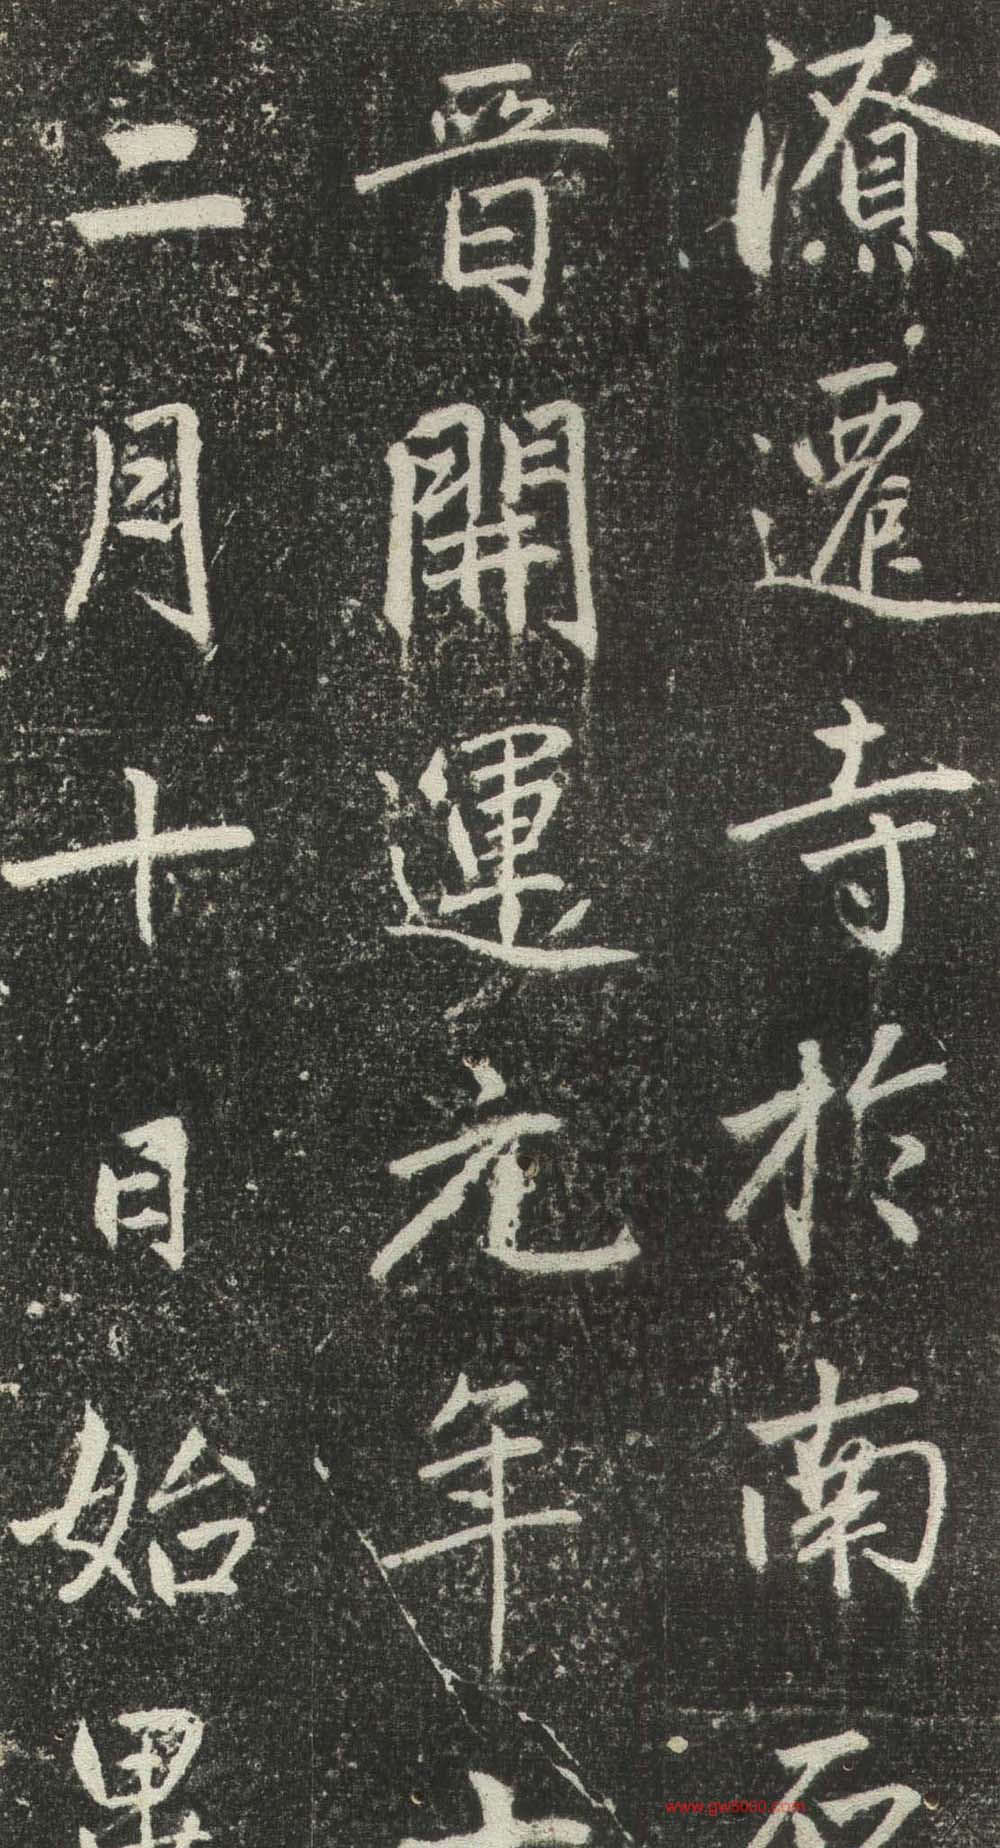 濱遷寺於南
晉開運元年十
二月十日始畢
www.gw5000.com